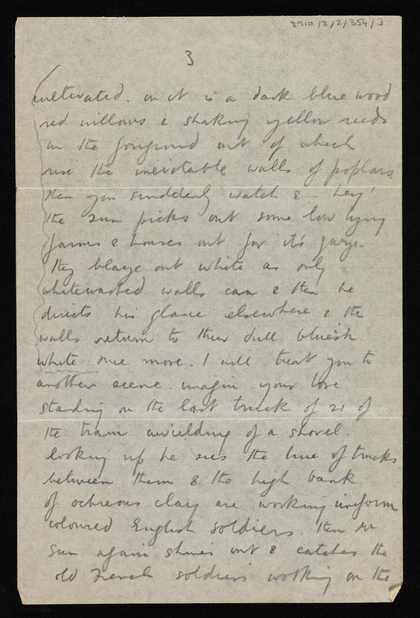 3
cultivated. on it is a dark blue wood
red willows & shaking yellow reeds
in the foreground out of which
rise the inevitable walls of poplars
then you suddenly watch & hey!
the sun picks out some low lying
farms & houses out for it's gaze.
they blaze out white as only
whitewashed walls can & then he
directs his glance elsewhere & the
walls return to their dull blueish
white once more. I will treat you to
another scene. imagin your love
standing on the last truck of 21 of
the train wielding of a shovel.
looking up he sees the line of trucks
between them & the high bank
of ochreous clay are working uniform
coloured English soldiers. then the
sun again shines out & catches the
old French soldiers working on the